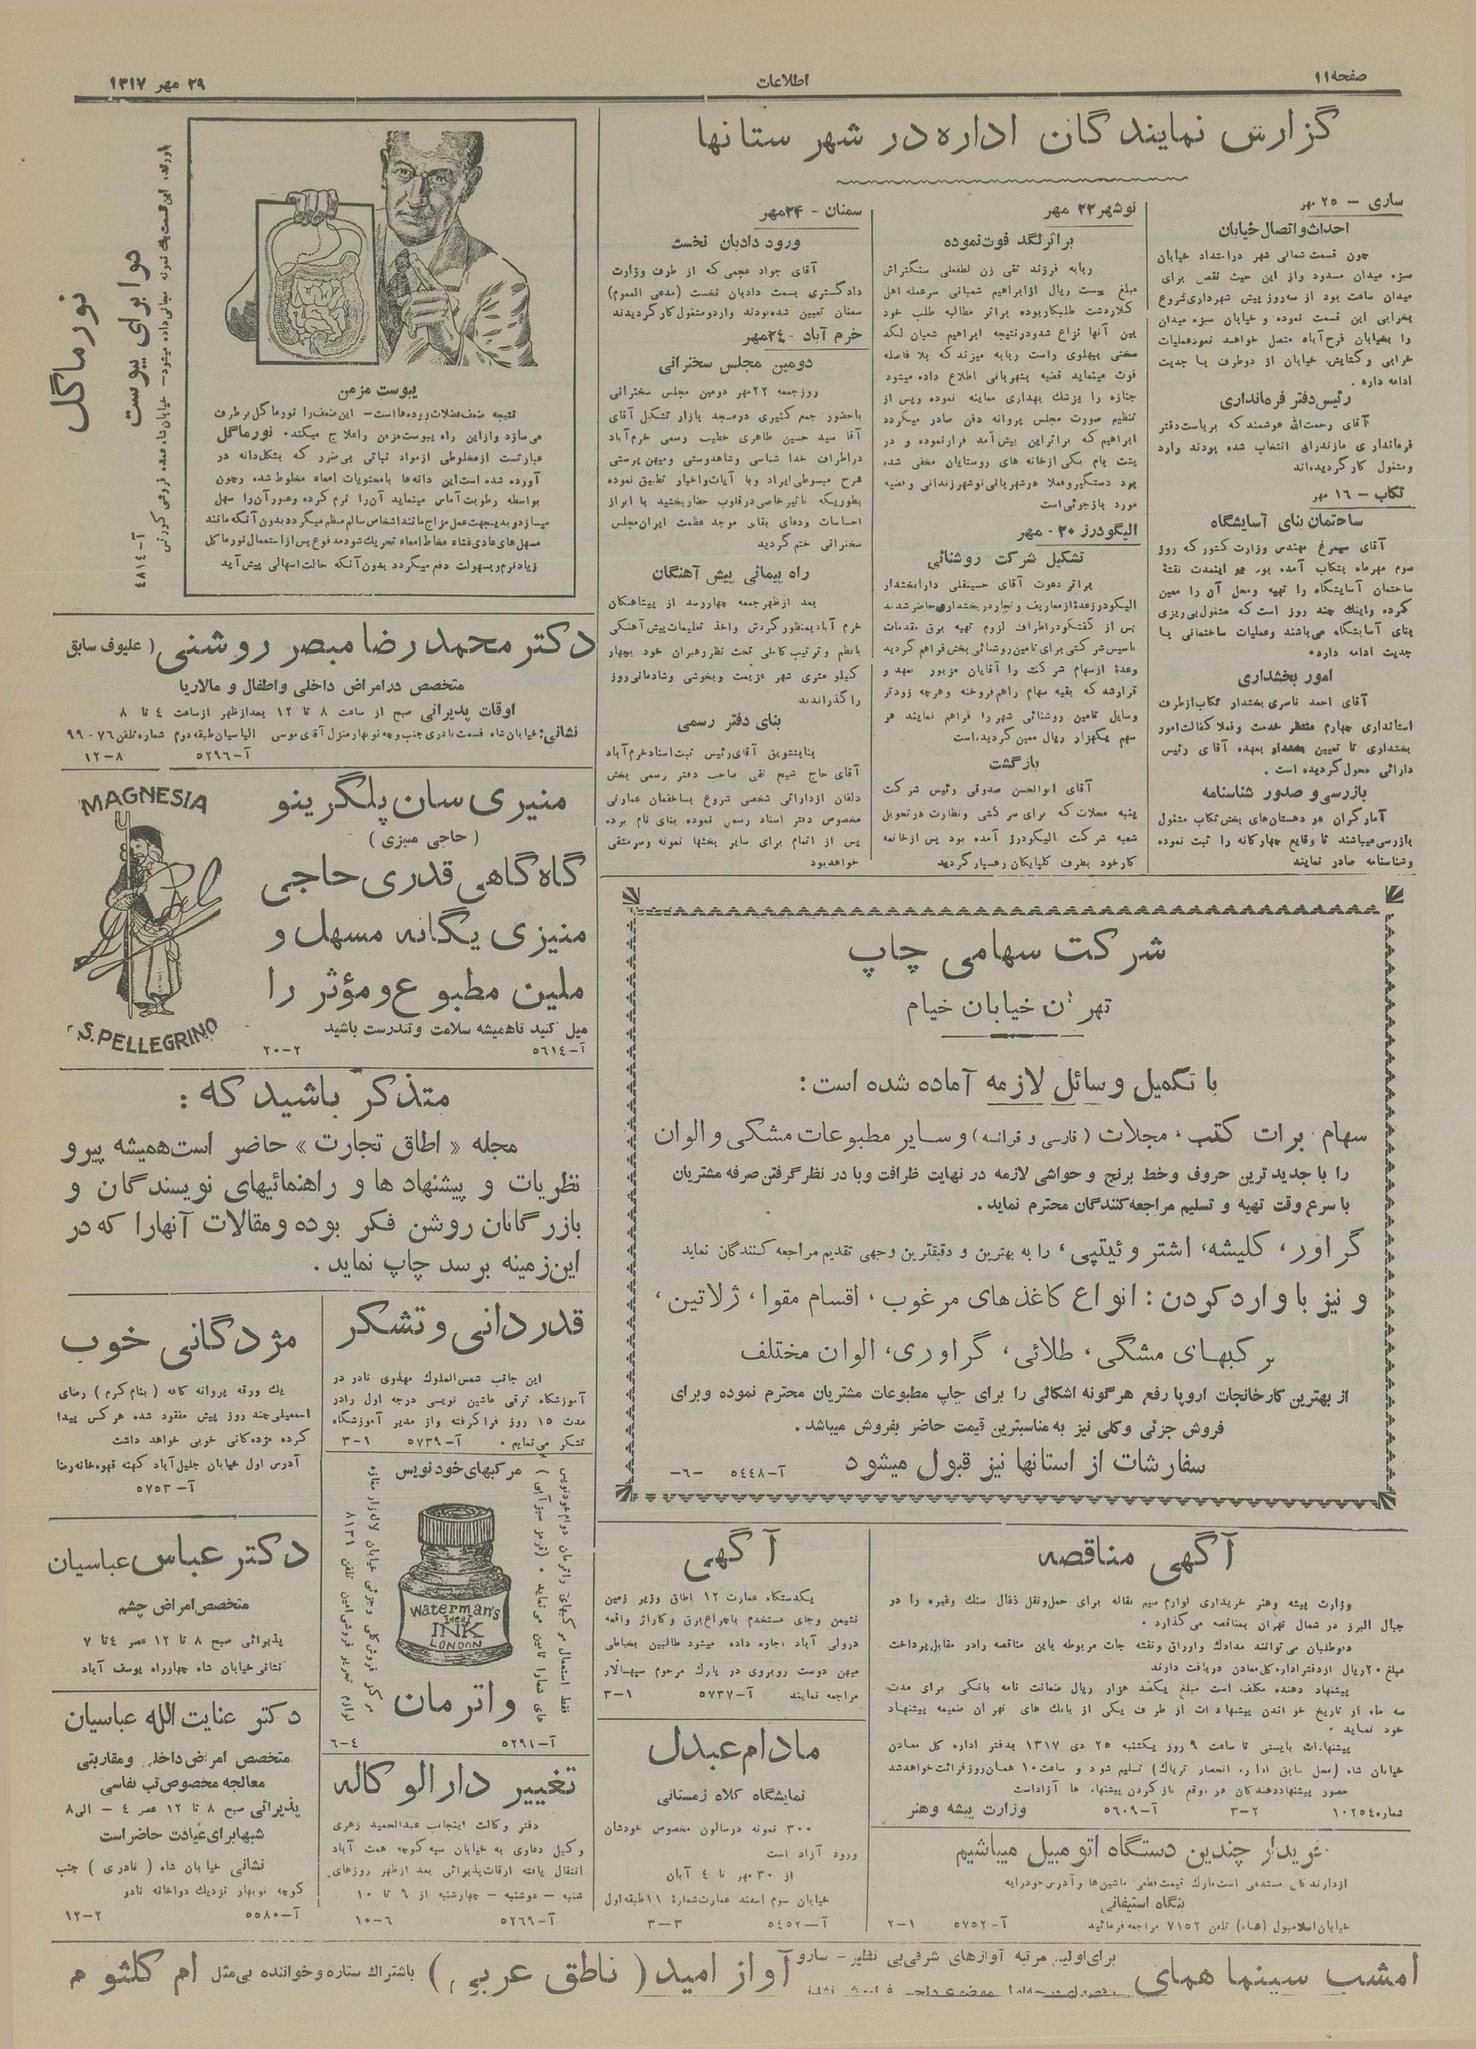 صفحه ۱۱
اطلاعات
۲۹ مهر ۱۳۱۷
گزارش نمایندگان اداره در شهرستانها
ساری – ۲۵ مهر
احداث و اتصال خیابان
چون قسمت شمالی شهر در امتداد خیابان
سبزه میدان مسدود و از این حیث نقص برای
میدان ساعت بود از سه روز پیش شهرداری شروع
بخرابی این قسمت نموده و خیابان سبزه میدان
را بخیابان فرح آباد متصل خواهد نمود عملیات
خرابی و گشایش خیابان از دو طرف با جدیت
ادامه دارد.
رئیس دفتر فرمانداری
آقای رحمت‌الله هوشمند که بریاست دفتر
فرمانداری مازندران انتخاب شده بودند وارد
و مشغول کار گردیده‌اند
تکاب – ۱۶ مهر
ساختمان بنای آسایشگاه
آقای سیمرغ مهندس وزارت کشور که روز
سوم مهرماه بتکاب آمده بود
ساختمان آسایشگاه را تهیه و محل آن را معین
کرده و اینک چند روز است که مشغول پی ریزی
بنای آسایشگاه می‌باشند و عملیات ساختمانی با
جدیت ادامه دارد.
امور بخشداری
آقای احمد ناصری بخشدار تکاب از طرف
استانداری چهارم منتظر خدمت و فعلا کفالت امور
بخشداری تا تعیین بخشدار بعهده آقای رئیس
دارائی محول گردیده است.
بازرسی و صدور شناسنامه
آمارگران در دهستان‌های بخش تکاب مشغول
بازرسی میباشند تا وقایع چهارگانه را ثبت نموده
و شناسنامه صادر نمایند
نوشهر ۲۲ مهر
براثر لگد فوت نموده
ربابه فرزند تقی زن لطفعلی سنگتراش
مبلغ بیست ریال از ابراهیم شعبانی سرعمله اهل
کلاردشت طلبکار بوده براثر مطالبه طلب خود
بین آنها نزاع شد و در نتیجه ابراهیم شعبان لگد
سختی بپهلوی راست ربابه میزند که بلافاصله
فوت مینماید قضیه بشهربانی اطلاع داده میشود
جنازه را پزشک بهداری معاینه نموده و پس از
تنظیم صورت مجلس پروانه دفن صادر میگردد
ابراهیم که براثر این پیش آمد فرار نموده و در
پشت بام یکی از خانه های روستایان مخفی شده
بود دستگیر و فعلا در شهربانی نوشهر زندانی و قضیه
مورد بازجوئی است
الیگودرز ۲۰ - مهر
تشکیل شرکت روشنائی
براثر دعوت آقای حسینقلی دارا بخشدار
الیگودرز عده‌ای از معاریف و تجار در بخشداری حاضر شدند
پس از گفتگو در اطراف لزوم تهیه برق مقدمات
تاسیس شرکتی برای تامین روشنائی بخش فراهم گردید
وعده‌ای از سهام شرکت را آقایان مزبور تعهد و
قرار شد که بقیه سهام را هم فروخته و هرچه زودتر
وسایل تامین روشنائی شهر را فراهم نمایند هر
سهم یکهزار ریال معین گردیده است.
بازگشت
آقای ابوالحسن صدوقی رئیس شرکت
پنبه محلات که برای سرکشی و نظارت در تحویل
شعبه شرکت الیگودرز آمده بود پس از خاتمه
کار خود بطرف گلپایگان رهسپار گردید
سمنان - ۲۴ مهر
ورود دادبان نخست
آقای جواد عجمی که از طرف وزارت
دادگستری بسمت دادبان نخست (مدعی العموم)
سمنان تعیین شده بودند وارد و مشغول کار گردیدند
خرم آباد - ۲۴ مهر
دومین مجلس سخنرانی
روز جمعه ۲۲ مهر دومین مجلس سخنرانی
با حضور جمع کثیری در مسجد بازار تشکیل آقای
آقا سید حسین طاهری خطیب رسمی خرم آباد
در اطراف خدا شناسی و شاهدوستی و میهن پرستی
شرح مبسوطی ایراد و با آیات و اخبار تطبیق نموده
بطوریکه تاثیر خاصی در قلوب حضار بخشید با ابراز
احساسات و دعای بقای موجد عظمت ایران مجلس
سخنرانی ختم گردید
راه پیمائی پیش آهنگان
بعد از ظهر جمعه چهار رسد از پیشاهنگان
خرم آباد بمنظور گردش و اخذ تعلیمات پیش آهنگی
با نظم و ترتیب کاملی تحت نظر رهبران خود بچهار
کیلو متری شهر عزیمت و بخوشی و شادمانی روز
را گذراندند
بنای دفتر رسمی
بنا بتشویق آقای رئیس ثبت اسناد خرم آباد
آقای حاج شیخ تقی صاحب دفتر رسمی بخش
دلفان از دارائی شخصی شروع بساختمان عمارتی
مخصوص دفتر اسناد رسمی نموده بنای نام برده
پس از اتمام برای سایر بخشها نمونه و سرمشقی
خواهد بود
نورماگل
دوا برای یبوست
آ–۴۸۱۴
یبوست مزمن
نتیجه ضعف عضلات روده‌ها است – این ضعف را نورماگل برطرف
می‌سازد و از این راه یبوست مزمن را علاج میکند. نورماگل
عبارتست از مخلوطی از مواد نباتی بی‌ضرر که بشکل دانه در
آورده شده است این دانه‌ها با محتویات امعاء مخلوط شده و چون
بواسطه رطوبت آماس مینماید آن را نرم کرده و عبور آن را سهل
میسازد و بدینجهت عمل مزاج مانند اشخاص سالم منظم میگردد بدون آنکه مانند
مسهل‌های عادی غشاء مخاط امعاء تحریک شود مدفوع پس از استعمال نورماگل
زیاد نرم و بسهولت دفع میگردد بدون آنکه حالت اسهالی پیش آید
دکتر محمد رضا مبصر روشنی (علیوف سابق
متخصص در امراض داخلی و اطفال و مالاریا
اوقات پذیرائی صبح از ساعت ۸ تا ۱۲ بعد از ظهر از ساعت ۴ تا ۸
نشانی: خیابان شاه قسمت نادری جنب کوچه نوبهار منزل آقای موسی الیاسیان طبقه دوم شماره تلفن ۷۶-۹۹
آ–۵۲۹۶ ۸–۱۲
MAGNESIA
S. PELLEGRINO
منیزی سان پلگرینو
(حاجی منیزی)
گاه گاهی قدری حاجی
منیزی یگانه مسهل و
ملین مطبوع و مؤثر را
میل کنید تا همیشه سلامت و تندرست باشید
آ–۵۶۱۴ ۲–۲۰
متذکر باشید که :
مجله «اطاق تجارت» حاضر است همیشه پیرو
نظریات و پیشنهاد ها و راهنمائیهای نویسندگان و
بازرگانان روشن فکر بوده و مقالات آنهارا که در
این زمینه برسد چاپ نماید.
شرکت سهامی چاپ
تهران خیابان خیام
با تکمیل وسائل لازمه آماده شده است:
سهام برات کتب، مجلات (فارسی و فرانسه) و سایر مطبوعات مشکی و الوان
را با جدید ترین حروف و خط برنج و حواشی لازمه در نهایت ظرافت و با در نظر گرفتن صرفه مشتریان
با سرع وقت تهیه و تسلیم مراجعه کنندگان محترم نماید.
گراور، کلیشه، اشترو تیتپی، را به بهترین و دقیقترین وجهی تقدیم مراجعه کنندگان نماید
و نیز با وارد کردن: انواع کاغذهای مرغوب، اقسام مقوا، ژلاتین،
مرکبهای مشگی، طلائی، گراوری، الوان مختلف
از بهترین کارخانجات اروپا رفع هرگونه اشکالی را برای چاپ مطبوعات مشتریان محترم نموده و برای
فروش جزئی و کلی نیز به مناسبترین قیمت حاضر بفروش میباشد.
سفارشات از استانها نیز قبول میشود آ–۵۴۴۸ –۶–
قدردانی و تشکر
این جانب شمس‌الملوک مهدوی نادر در
آموزشگاه ترقی ماشین نویسی درجه اول را در
مدت ۱۵ روز فرا گرفته و از مدیر آموزشگاه
تشکر می‌نمایم. آ–۵۷۳۹ ۱–۳
مژدگانی خوب
یک ورقه پروانه (بنام کرم) رضای
اسمعیلی چند روز پیش مفقود شده هر کس پیدا
کرده مژدگانی خوبی خواهد داشت
آدرس اول خیابان جلیل آباد کهنه قهوه خانه رضا
آ–۵۷۵۳
مرکبهای خودنویس
Waterman's
Ideal
INK
LONDON
واترمان
آ–۵۲۹۱ ۴–۶
دکتر عباس عباسیان
متخصص امراض چشم
پذیرائی صبح ۸ تا ۱۲ عصر ۴ تا ۷
نشانی خیابان شاه چهارراه یوسف آباد
دکتر عنایت الله عباسیان
متخصص امراض داخلی و مقاربتی
معالجه مخصوص تب نفاسی
پذیرائی صبح ۸ تا ۱۲ عصر ۴ – الی ۸
شبها برای عیادت حاضر است
نشانی خیابان شاه (نادری) جنب
کوچه نوبهار نزدیک دواخانه نادر
آ–۵۵۸۰ ۲–۱۲
تغییر دارالوکاله
دفتر وکالت اینجانب عبدالحمید زهری
وکیل دعاوی به خیابان سپه کوچه همت آباد
انتقال یافته اوقات پذیرائی بعد از ظهر روزهای
شنبه – دوشنبه – چهارشنبه از ۶ تا ۱۰
آ–۵۲۶۹ ۶–۱۰
آگهی
یکدستگاه عمارت ۱۲ اطاق وزیر زمین
نشیمن و جای مستخدم با چراغ برق و گاراژ واقعه
در ولی آباد اجاره داده میشود طالبین بخیاطی
میهن دوست روبروی در پارک مرحوم سپهسالار
مراجعه نمایند آ–۵۷۳۷ ۱–۳
مادام عبدل
نمایشگاه کلاه زمستانی
۳۰۰ نمونه در سالون مخصوص خودشان
ورود آزاد است
از ۳۰ مهر تا ۴ آبان
خیابان سوم اسفند عمارت شمارهٔ ۱۱ طبقه اول
آ–۵۴۵۲ ۳–۳
آگهی مناقصه
وزارت پیشه و هنر خریداری لوازم سیم نقاله برای حمل و نقل ذغال سنگ و غیره را در
جبال البرز در شمال تهران بمناقصه می‌گذارد.
داوطلبان می‌توانند مدارک و اوراق و نقشه جات مربوطه باین مناقصه را در مقابل پرداخت
مبلغ ۲۰ ریال از دفتر اداره کل معادن دریافت دارند
پیشنهاد دهنده مکلف است مبلغ یکصد هزار ریال ضمانت نامه بانکی برای مدت
سه ماه از تاریخ خواندن پیشنهادات از طرف یکی از بانک های تهران ضمیمه پیشنهاد
خود نماید.
پیشنهادات بایستی تا ساعت ۹ روز یکشنبه ۲۵ دی ۱۳۱۷ بدفتر اداره کل معادن
خیابان شاه (محل سابق اداره انحصار تریاک) تسلیم شود و ساعت ۱۰ همان روز قرائت خواهد شد
حضور پیشنهاد دهندگان در موقع باز کردن پیشنهادها آزاد است
شماره ۱۰۲۵۴ ۲–۳ آ–۵۶۰۹ وزارت پیشه و هنر
خریدار چندین دستگاه اتومبیل میباشیم
بنگاه استیفانی
خیابان اسلامبول تلفن ۷۱۵۲ مراجعه فرمائید آ–۵۷۵۲ ۱–۲
امشب سینما همای
برای اولین مرتبه آوازهای شرقی بی نظیر –
آواز امید (ناطق عربی)
باشتراک ستاره و خواننده بی‌مثل ام کلثوم